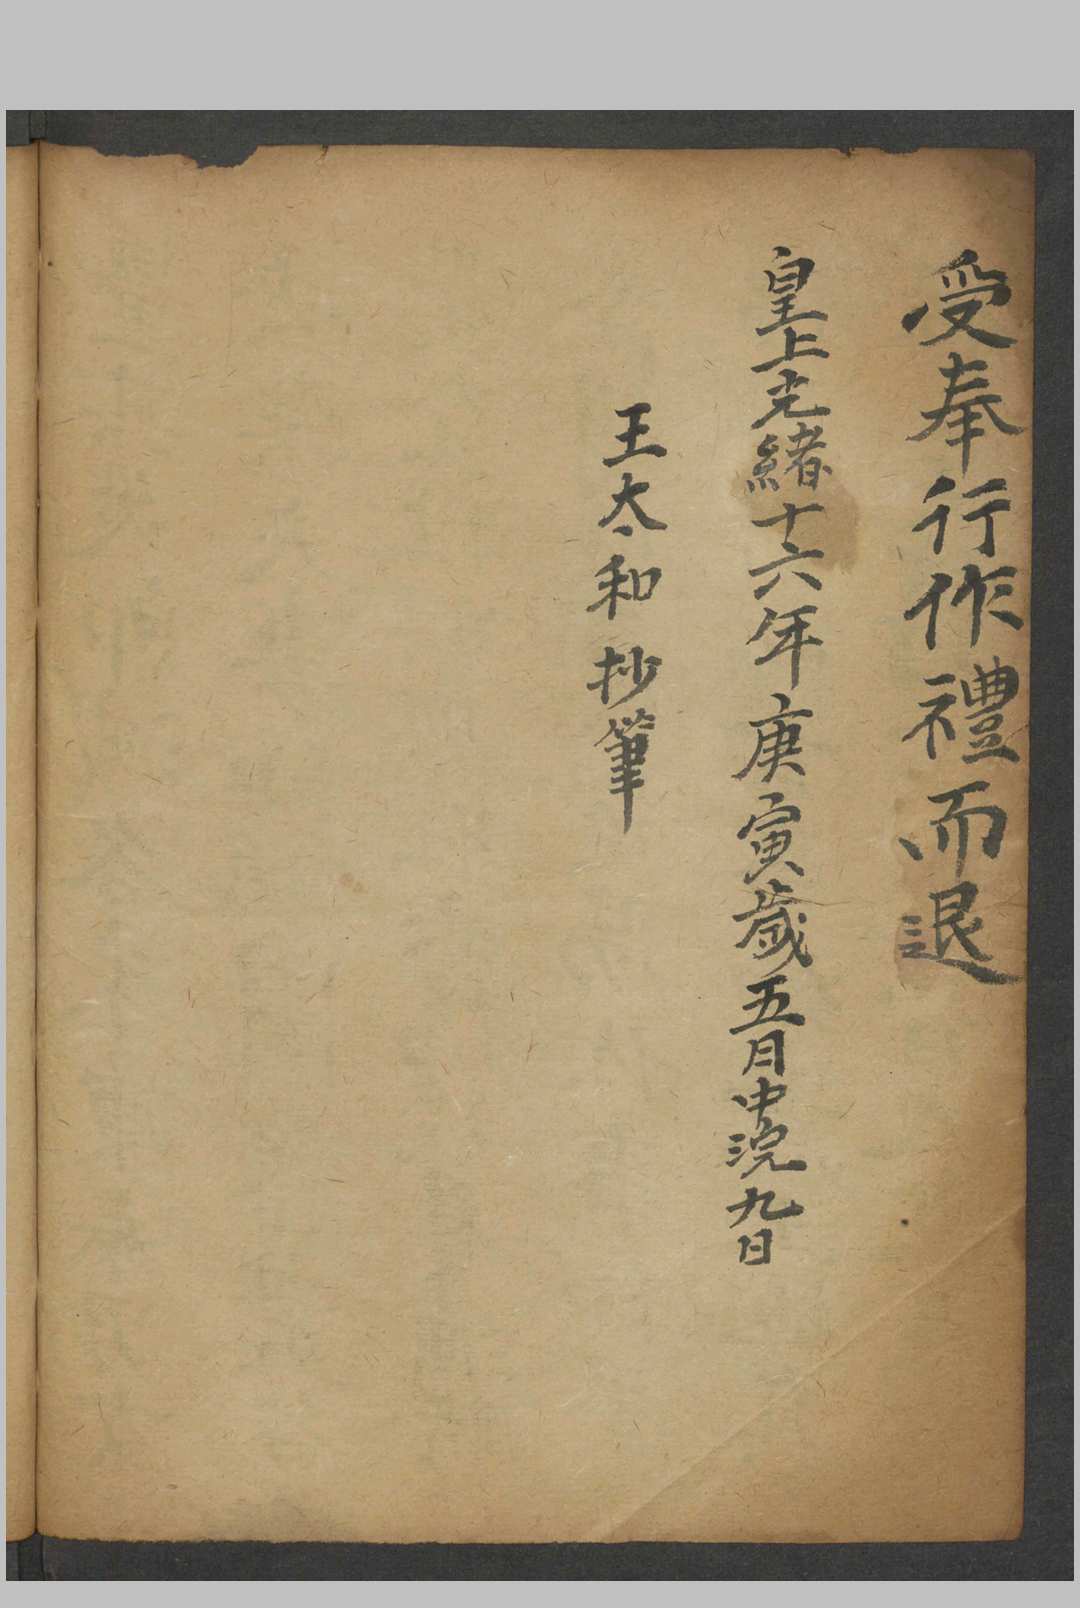 受奉行作禮而退
皇上光緒十六年庚寅歲五月中浣九日
王太和抄筆